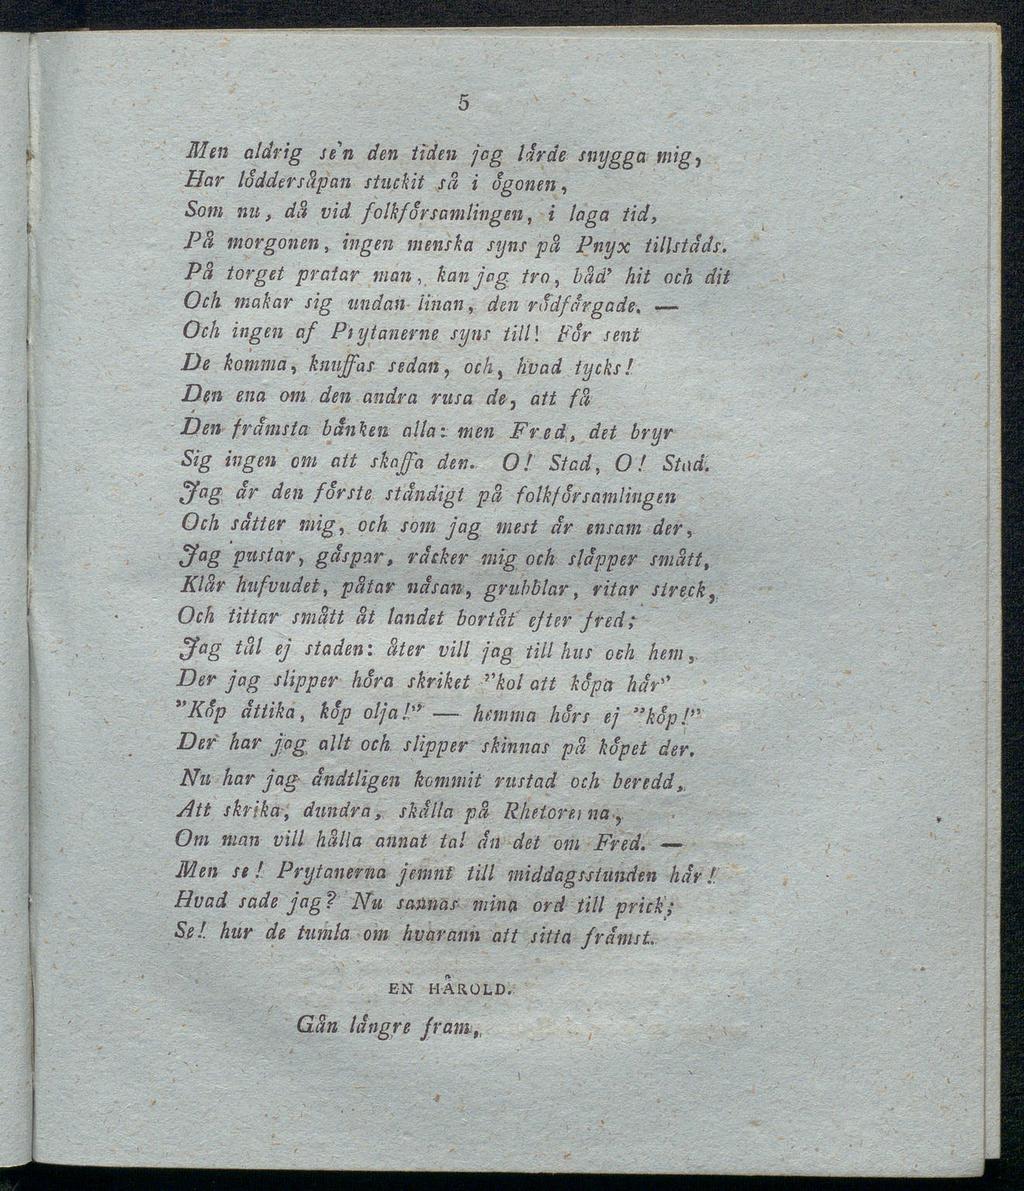 5
Men aldrig se'n den tiden jag lärde snygga mig,
Har löddersåpan stuckit så i ögonen,
Som nu, då vid folkförsamlingen, i laga tid,
På morgonen, ingen menska syns på Pnyx tillstäds.
På torget pratar man, kan jag tro, båd' hit och dit
Och makar sig undan linan, den rödfärgade. —
Och ingen af Prytanerne syns till! För sent
De komma, knuffas sedan, och, hvad tycks!
Den ena om den andra rusa de, att få
Den främsta bänken alla: men Fred, det bryr
Sig ingen om att skaffa den. O! Stad, O! Stad.
Jag är den förste ständigt på folkförsamlingen
Och sätter mig, och som jag mest är ensam der,
Jag pustar, gäspar, räcker mig och släpper smått,
Klår hufvudet, påtar näsan, grubblar, ritar streck,
Och tittar smått åt landet bortåt efter fred;
Jag tål ej staden: åter vill jag till hus och hem,
Der jag slipper höra skriket "kol att köpa här"
"Köp ättika, köp olja!" — hemma hörs ej "köp!"
Der har jag allt och slipper skinnas på köpet der.
Nu har jag ändtligen kommit rustad och beredd,
Att skrika, dundra, skälla på Rhetorerna,
Om man vill hålla annat tal än det om Fred. —
Men se! Prytanerna jemnt till middagsstunden här!
Hvad sade jag? Nu sannas mina ord till prick;
Se! hur de tumla om hvarann att sitta främst.
EN HÄROLD.
Gån längre fram,